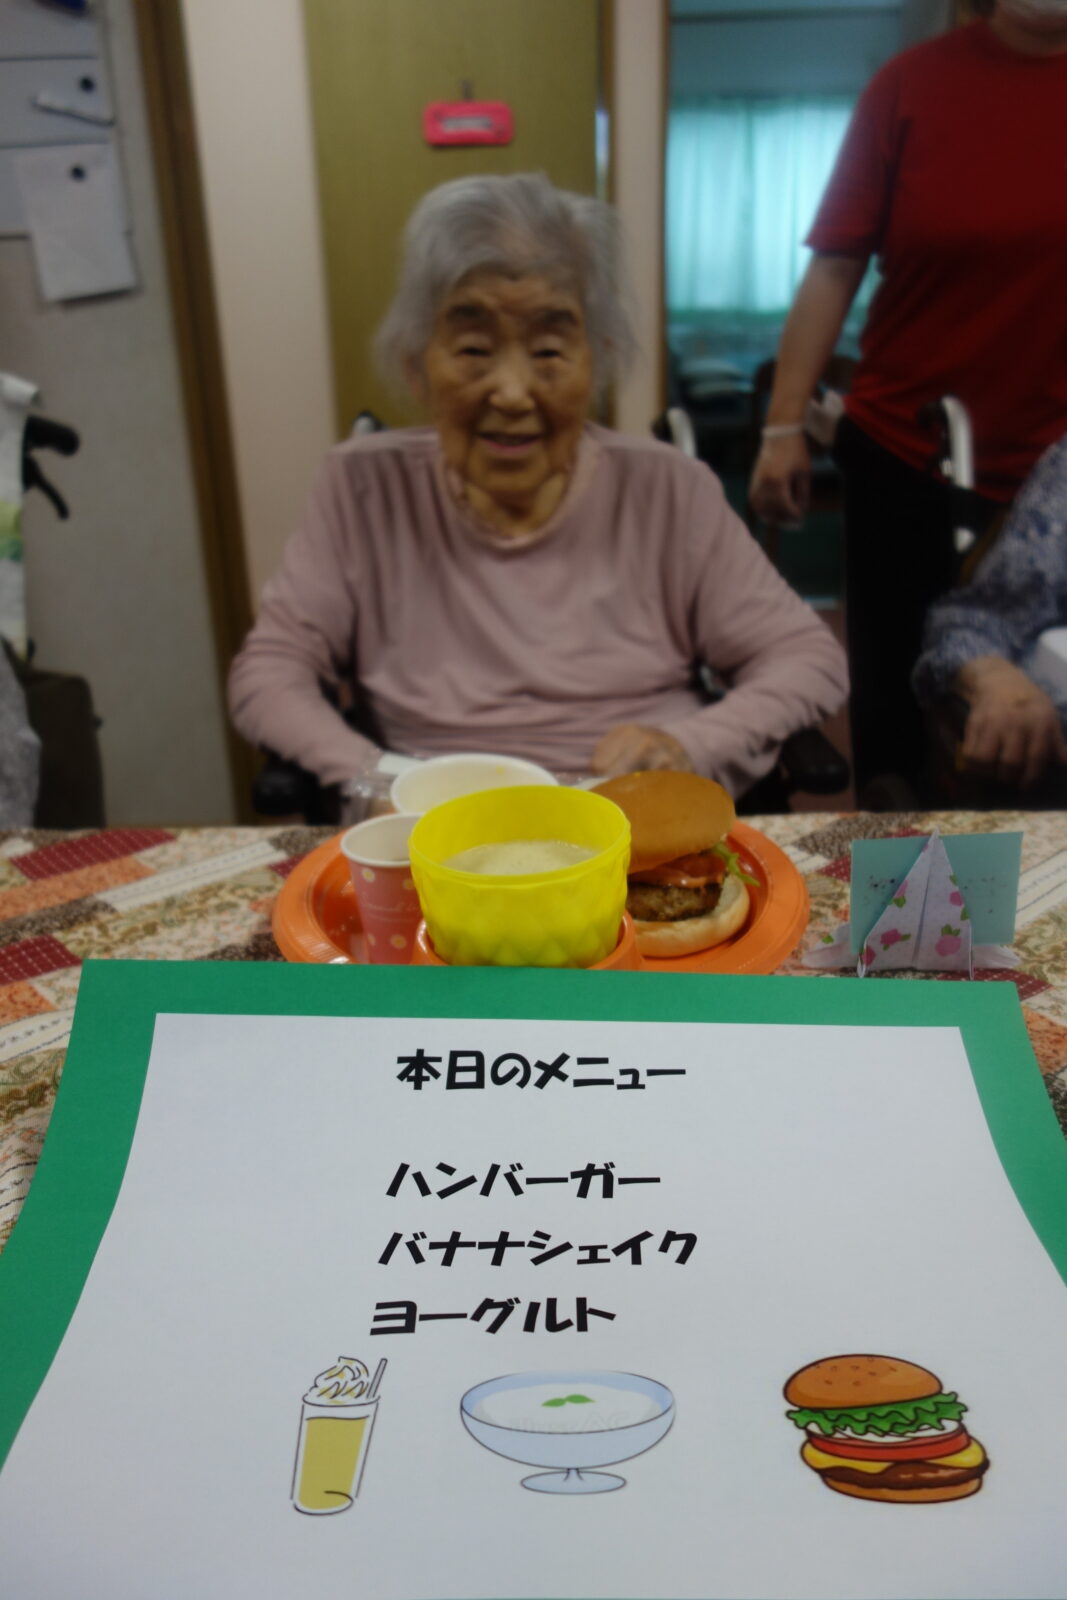 本日のメニュー
ハンバーガー
バナナシェイク
ヨーグルト